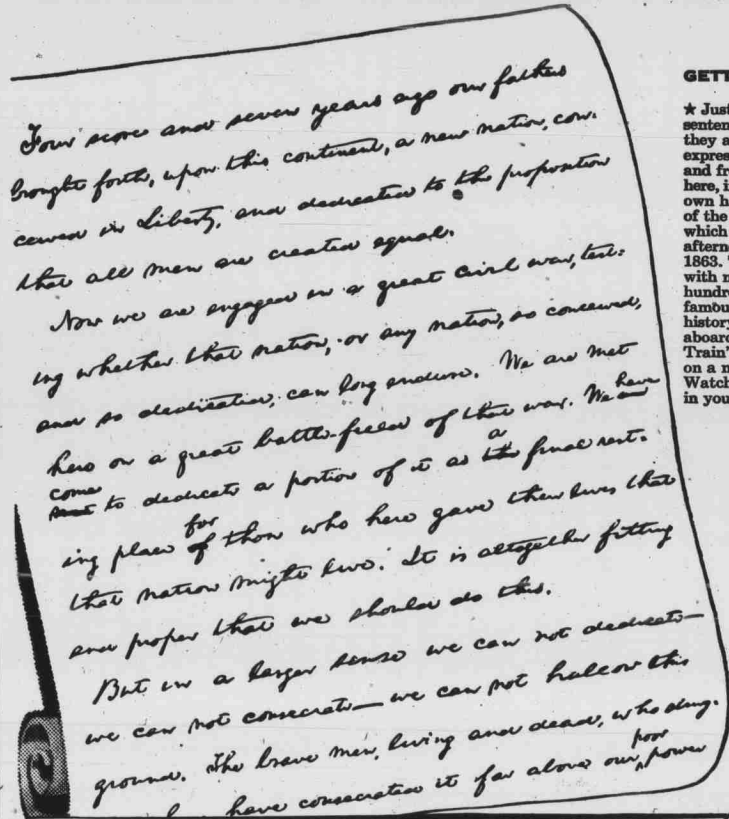 Four score and seven years ago our fathers
brought forth, upon this continent, a new nation, con-
ceived in Liberty, and dedicated to the proposition
that all men are created equal.
Now we are engaged in a great civil war, test-
ing whether that nation, or any nation, so conceived,
and so dedicated, can long endure. We are met
here on a great battle-field of that war. We have are
come met to dedicate a portion of it as a the final rest-
ing place for of those who here gave their lives that
that nation might live. It is altogether fitting
and proper that we should do this.
But in a larger sense we can not dedicate—
we can not consecrate—we can not hallow this
ground. The brave men, living and dead, who strug-
have consecrated it far above our poor power
GETT
★ Just
senten
they a
expres
and fr
here, i
own h
of the
which
aftern
1863.
with m
hundre
famou
history
aboard
Train'
on a n
Watch
in you